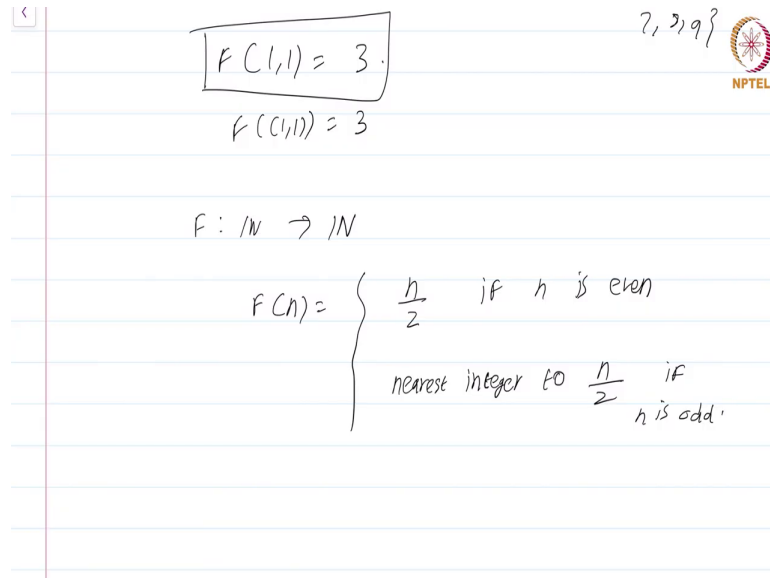 7, 3, 9}
NPTEL
F(1,1) = 3.
F((1,1)) = 3
F : ℕ → ℕ
F(n) = { n/2 if n is even
nearest integer to n/2 if
n is odd.